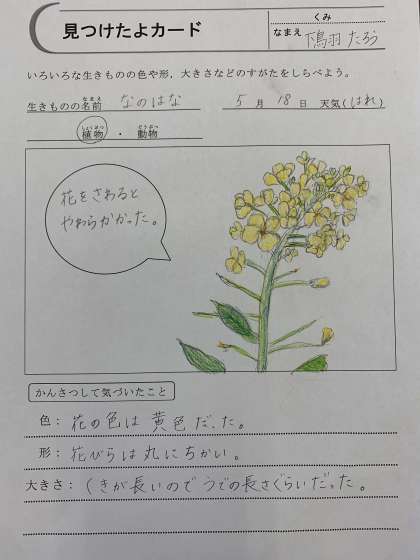 見つけたよカード
くみ
なまえ 下鳥羽 たろう
いろいろな生きものの色や形，大きさなどのすがたをしらべよう。
生きものの名前 なのはな 5月18日 天気(はれ)
植物 ・ 動物
花をさわると
やわらかかった。
かんさつして気づいたこと
色：花の色は黄色だった。
形：花びらは丸にちかい。
大きさ：くきが長いのでうでの長さぐらいだった。